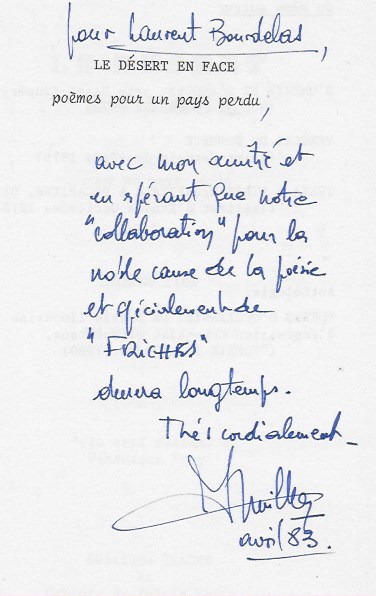 pour Laurent Bourdelas,
LE DÉSERT EN FACE
poèmes pour un pays perdu,
avec mon amitié et
en espérant que notre
"collaboration" pour la
noble cause de la poésie
et spécialement de
"FRICHES"
durera longtemps.
Très cordialement_
avril 83.